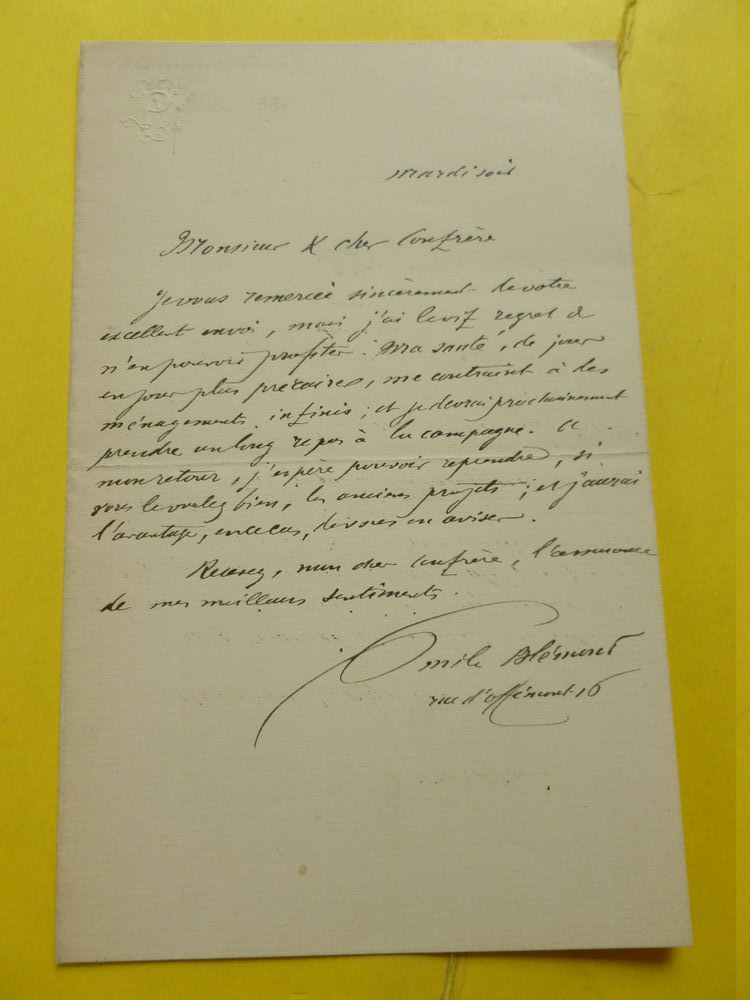 mardi soir
Monsieur & cher Confrère
Je vous remercie sincèrement de votre
excellent envoi, mais j'ai le vif regret de
n'en pouvoir profiter. Ma santé, de jour
en jour plus précaire, me contraint à des
ménagements infinis ; et je devrai prochainement
prendre un long repos à la campagne. A
mon retour, j'espère pouvoir reprendre, si
vous le voulez bien, les anciens projets ; et j'aurai
l'avantage, en ce cas, de vous en aviser.
Recevez, mon cher Confrère, l'assurance
de mes meilleurs sentiments.
Emile Blémont
rue d'Offémont 16